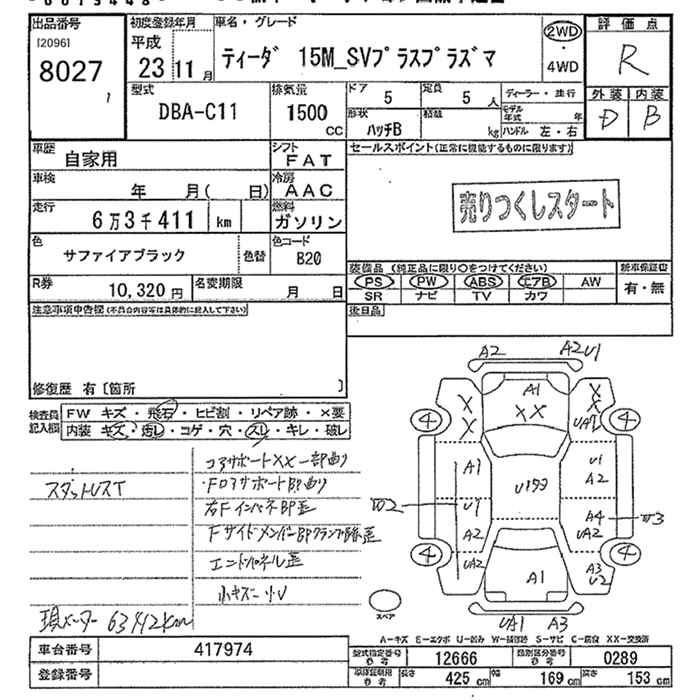 出品番号
I20961
8027
初度登録年月
平成
23 11月
車名・グレード
ティーダ 15M_SVプラスプラズマ
2WD
・
4WD
評価点
R
外装 内装
D B
型式
DBA-C11
排気量
1500
CC
ドア
5
定員
5 人
形状
ハッチB
積載
kg
ディーラー・並行
モデル年式 年
ハンドル 左・右
車歴
自家用
シフト
FAT
車検
年 月( 日)
冷房
AAC
走行
6万3千411 km
燃料
ガソリン
色
サファイアブラック
色替
色コード
B20
R券
10,320円
名変期限
月 日
セールスポイント(正常に機能するものに限ります)
売りつくしスタート
装備品 (純正品に限り○をつけてください)
PS PW ABS エアB AW
SR ナビ TV カワ
新車保証書
有・無
後日品
注意事項申告欄(不具合内容等は具体的に記入して下さい)
修復歴 有〔箇所 〕
検査員記入欄
FW キズ・飛石・ヒビ割・リペア跡・×要
内装 キズ・汚し・コゲ・穴・スレ・キレ・破レ
スタットレスT
コアサポートXX一部曲り
・Fロアサポート部曲り
右Fインパネ部歪
Fサイドメンバー部クランプ跡歪
エンドパネル歪
小キズ・小U
現メーター 63412km
A2
A2U1
A1
X X
X X
X X
UA2
4
4
A1
U1
A2
UA2
ワ2
U1
A2
A4
UA2
ワ3
A3
U2
U199
4
4
A1
UA1 A3
スペア
A-キズ E-エクボ U-凹み W-補修跡 S-サビ C-腐食 XX-交換済
車台番号
417974
登録番号
型式指定番号
参考
12666
類別区分番号
参考
0289
車体寸法
参考
長さ 425 cm
幅 169 cm
高さ 153 cm